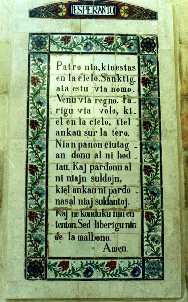 ESPERANTO
Patro nia, kiu estas
en la cielo, Sanktig
ata estu via nomo.
Venu via regno. Fa-
rigu via volo, ki-
el en la cielo, tiel
ankau sur la tero.
Nian panon ciutag-
an donu al ni hod
iau. Kaj pardonu al
ni niajn suldojn,
kiel ankau ni pardo-
nas al niaj suldantoj.
Kaj ne konduku nin en
tenton, Sed liberigu nin
de la malbono.
Amen.